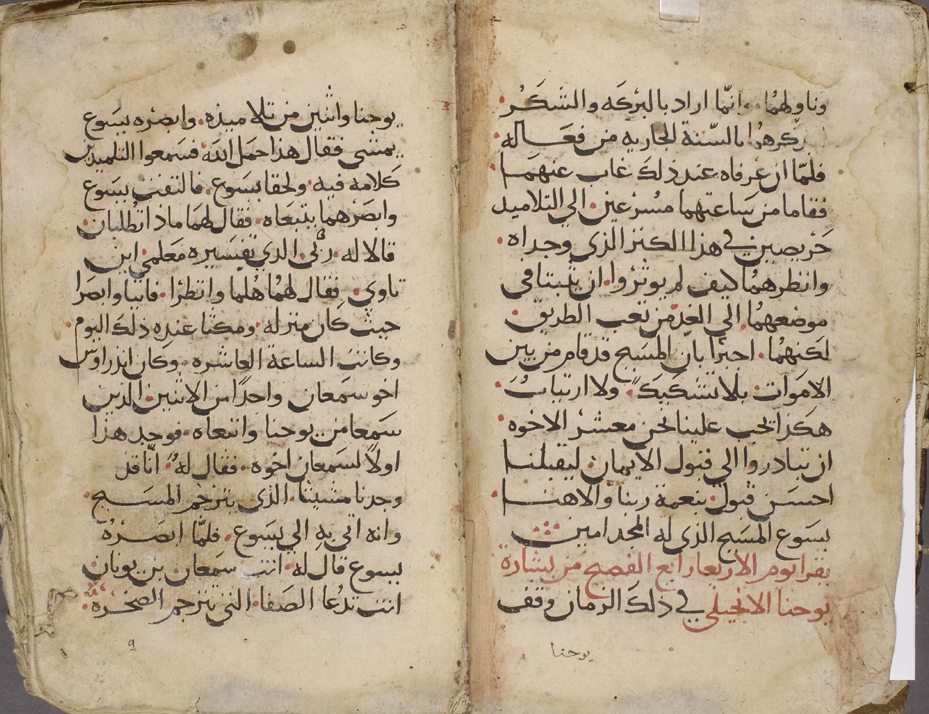 وناولهما. وانما اراد بالبركه والشكر
ذكرهما بالسنة الجاريه من فعاله
فلمّا ان عرفاه عند ذلك غاب عنهما
فقاما من ساعتهما مسرعين الي التلاميد
حريصين في هذا الكنز الذي وجداه.
وانظرهما كيف لم يوثروا ان يثبتا في
موضعهما الي الغد من تعب الطريق.
لكنهما. اخبرا بانّ المسيح قد قام من بين
الاموات بلا تشكيك ولا ارتياب
هكذا يجب علينا نحن معشر الاخوه
ان نبادروا الي قبول الايمان ليقبلنا
احسن قبول بنعمة ربنا والاهنا
يسوع المسيح الذي له المجد امين
يقرا يوم الاربعا رابع الفصح من بشارة
يوحنا الانجيلي في ذلك الزمان وقف
يوحنا
يوحنا واثنين من تلاميذه. وابصره يسوع
يمشي فقال هذا حمل الله. فسمعوا التلميذين
كلامه فيه. ولحقا يسوع. فالتفت يسوع
وابصرهما يتبعاه. فقال لهما ماذا تطلبان.
قالا له. ربّي. الذي تفسيره معلمي. اين
تاوي. فقال لهما هلما وانظرا. فاتيا وابصرا
حيث كان منزله. ومكثا عنده ذلك اليوم.
وكانت الساعة العاشره. وكان اندراوس
اخو سمعان واحدًا من الاثنين الذين
سمعا من يوحنا واتبعاه. فوجد هذا
اولاً لسمعان اخوه. فقال له. انّا قد
وجدنا مشيشا. الذي يترجم المسيح.
وانه اتي به الي يسوع. فلمّا ابصره
يسوع قال له. انت سمعان بن يونان
انت تدعا الصفا. التي تترجم الصخره.
٩